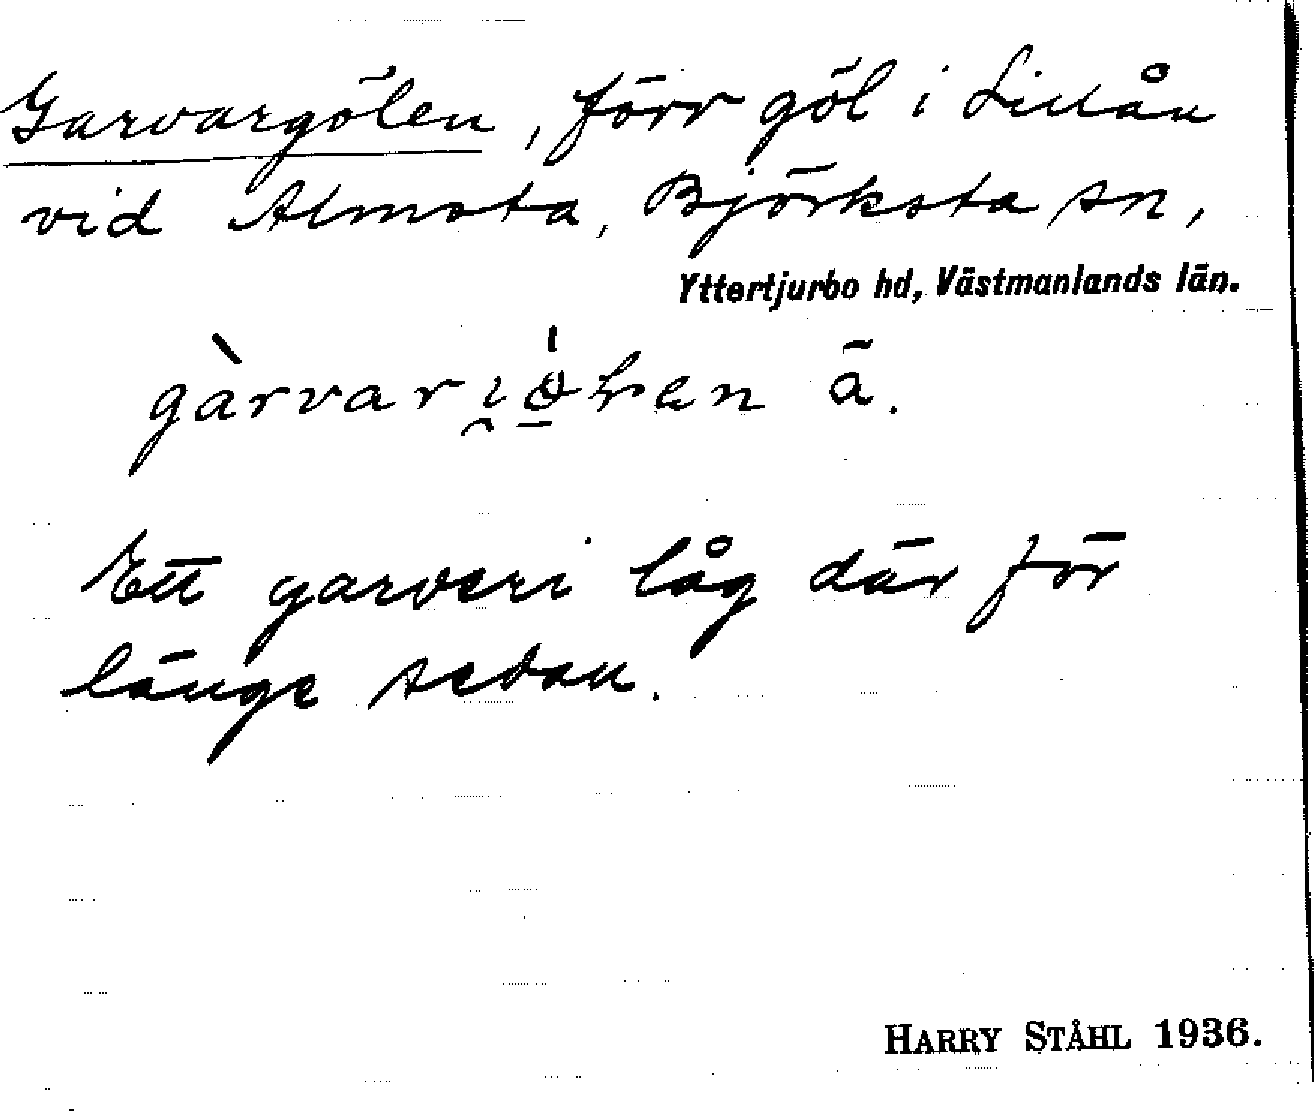 Garvargölen, förr göl i Lillån
vid Almsta, Björksta sn,
Yttertjurbo hd, Västmanlands län.
ā.
Ett garveri låg där för
länge sedan.
HARRY STÅHL 1936.